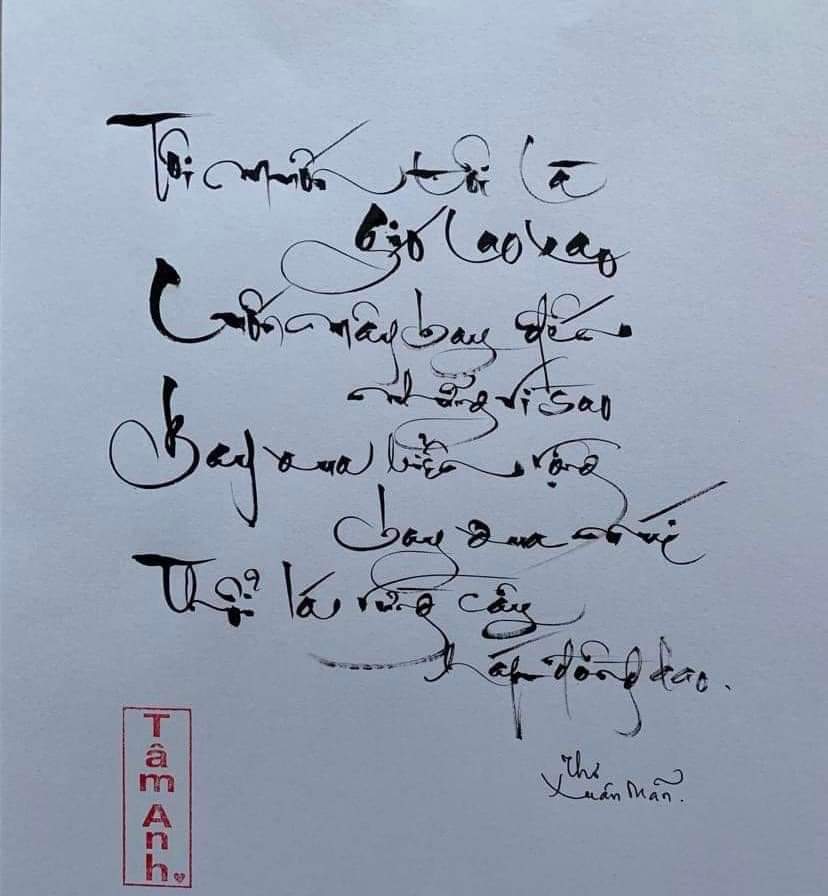 Tôi muốn tôi là
gió lao xao
Cuốn mây bay đến
những vì sao
Bay qua biển rộng
bay qua núi
Thổi lá rừng cây
hát đồng dao.
Thơ
Xuân Mãn.
Tâm Anh